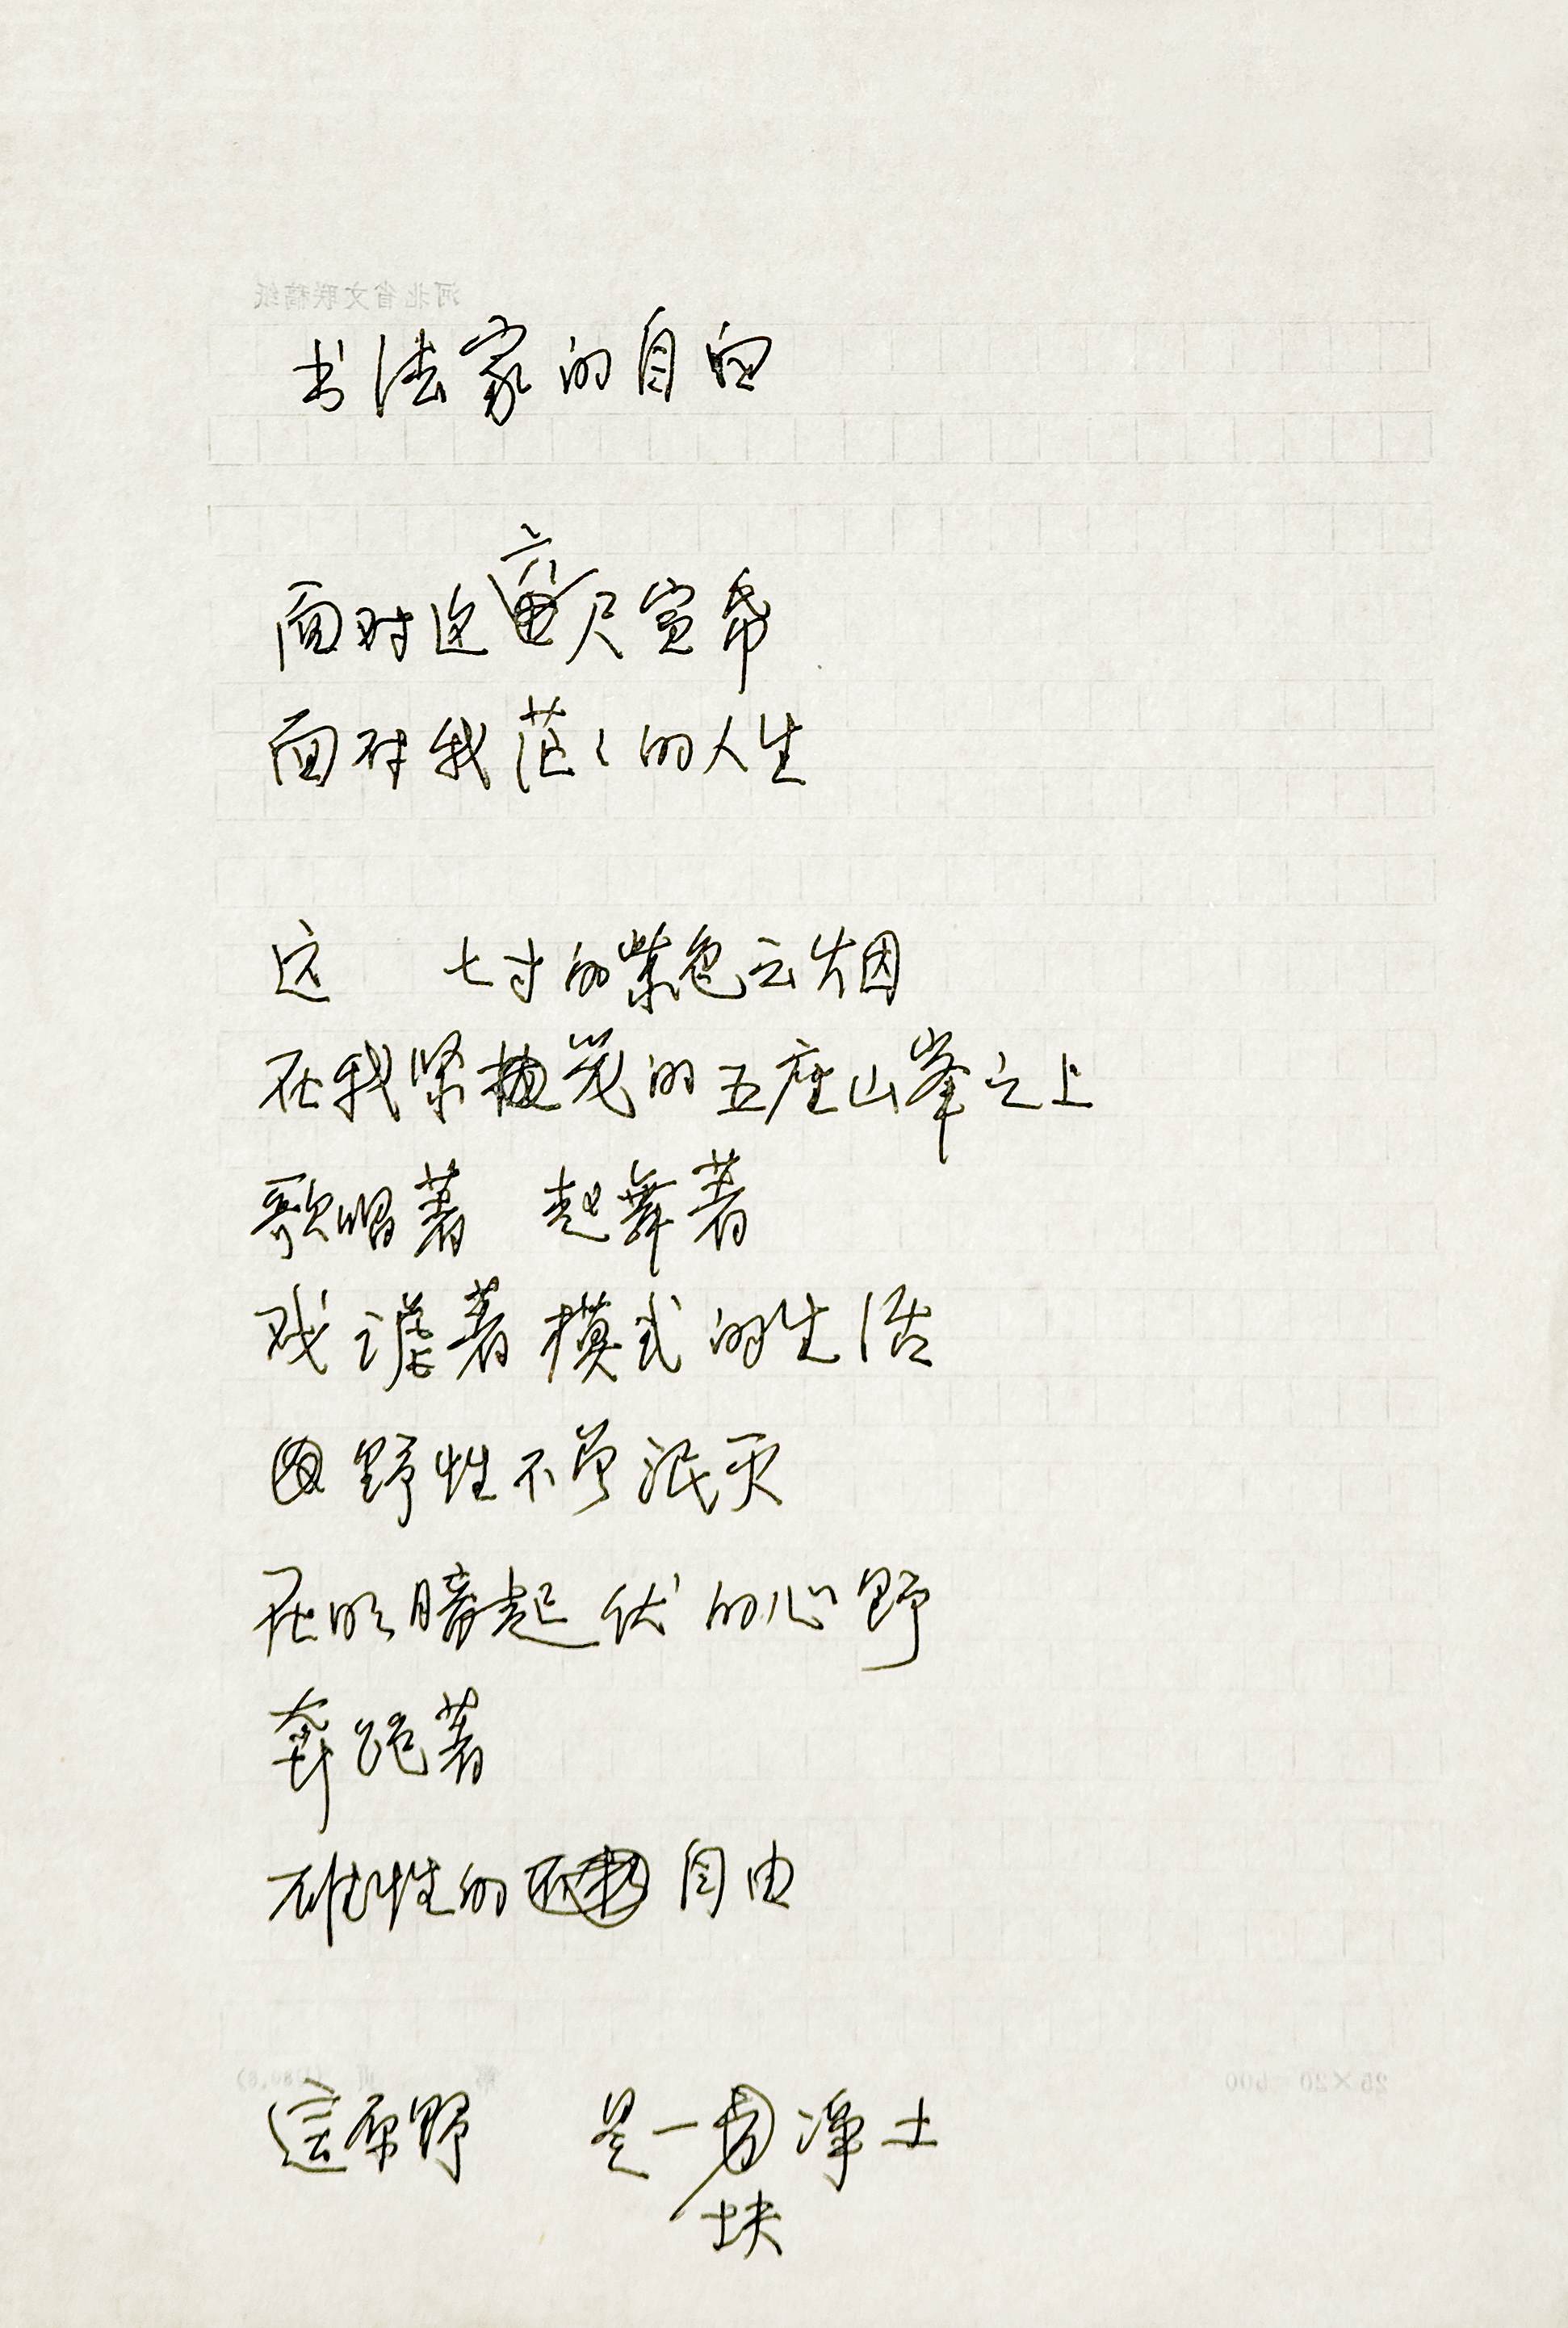 河北省文联稿纸
书法家的自白
面对这六尺宣帋
面对我茫々的人生
这 七寸的紫色云烟
在我紧拢的五座山峯之上
歌唱著 起舞著
戏谑著模式的生活
野性不曾泯灭
在明暗起伏的心野
奔跑著
雄性的自由
這原野 是一块净土
25×20=500